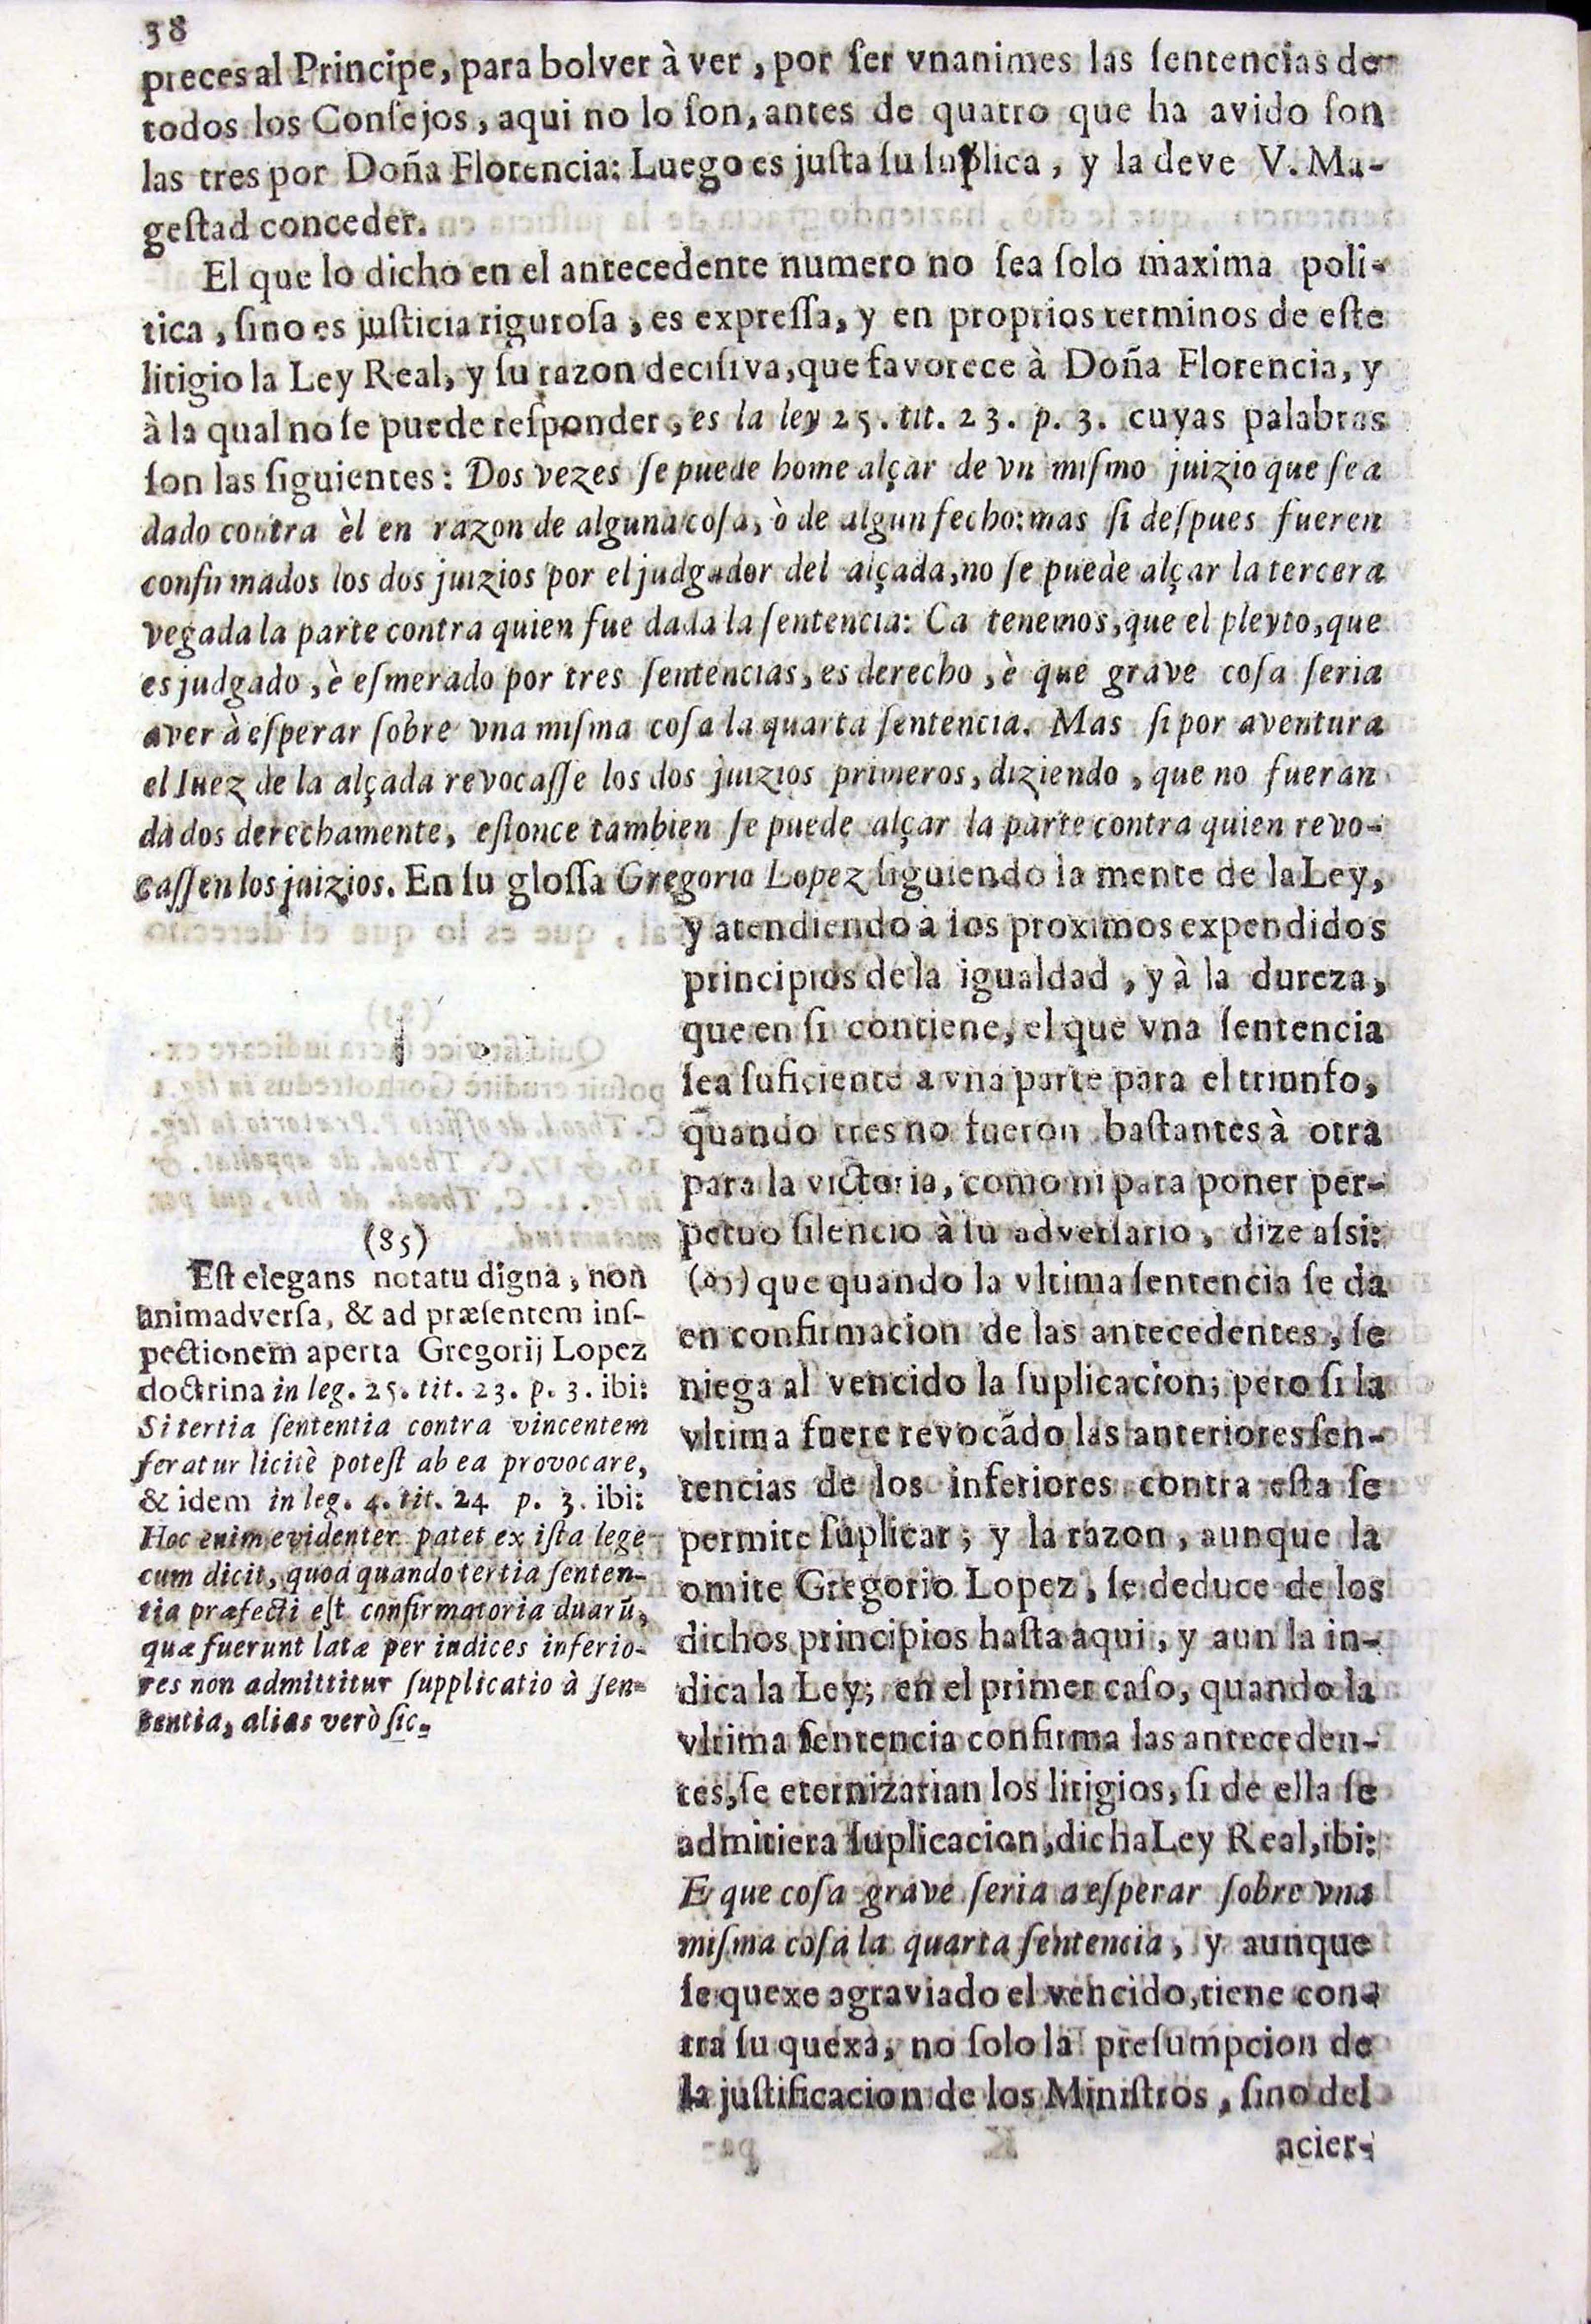 38
preces al Principe, para bolver à ver, por ſer vnanimes las ſentencias de
todos los Conſejos, aqui no lo ſon, antes de quatro que ha avido ſon
las tres por Doña Florencia: Luego es juſta ſu ſuplica, y la deve V. Ma-
geſtad conceder.
El que lo dicho en el antecedente numero no ſea ſolo maxima poli-
tica, ſino es juſticia riguroſa, es expreſſa, y en proprios terminos de eſte
litigio la Ley Real, y ſu razon deciſiva, que favorece à Doña Florencia, y
à la qual no ſe puede reſponder, es la ley 25. tit. 23. p. 3. cuyas palabras
ſon las ſiguientes: Dos vezes ſe puede home alçar de vn miſmo juizio que ſea
dado contra èl en razon de alguna coſa, ò de algun fecho: mas ſi deſpues fueren
confirmados los dos juizios por el judgador del alçada, no ſe puède alçar la tercera
vegada la parte contra quien fue dada la ſentencia: Ca tenemos, que el pleyto, que
es judgado, è eſmerado por tres ſentencias, es derecho, è que grave coſa ſeria
aver à eſperar ſobre vna miſma coſa la quarta ſentencia. Mas ſi por aventura
el Iuez de la alçada revocaſſe los dos juizios primeros, diziendo, que no fueran
dados derechamente, eſtonce tambien ſe puede alçar la parte contra quien revo-
caſſen los juizios. En ſu gloſſa Gregorio Lopez ſiguiendo la mente de la Ley,
y atendiendo à los proximos expendidos
principios de la igualdad, y à la dureza,
que en ſi contiene, el que vna ſentencia
ſea ſuficiente a vna parte para el triunfo,
quando tres no fueron baſtantes à otra
para la victoria, como ni para poner per-
petuo ſilencio à ſu adverſario, dize aſsi:
(85) que quando la vltima ſentencia ſe da
en confirmacion de las antecedentes, ſe
niega al vencido la ſuplicacion; pero ſi la
vltima fuere revocãdo las anteriores ſen-
tencias de los inferiores contra eſta ſe
permite ſuplicar; y la razon, aunque la
omite Gregorio Lopez, ſe deduce de los
dichos principios haſta aqui, y aun la in-
dica la Ley; en el primer caſo, quando la
vltima ſentencia confirma las anteceden-
tes, ſe eternizarian los litigios, ſi de ella ſe
admitiera ſuplicacion, dicha Ley Real, ibi:
E que coſa grave ſeria a eſperar ſobre vna
miſma coſa la quarta ſentencia, y aunque
ſe quexe agraviado el vencido, tiene con-
tra ſu quexa, no ſolo la preſumpcion de
la juſtificacion de los Miniſtros, ſino del
acier-
(85)
Eſt elegans notatu digna, non
animadverſa, & ad præſentem inſ-
pectionem aperta Gregorij Lopez
doctrina in leg. 25. tit. 23. p. 3. ibi:
Si tertia ſententia contra vincentem
feratur licitè poteſt ab ea provocare,
& idem in leg. 4. tit. 24 p. 3. ibi:
Hoc enim evidenter patet ex iſta lege
cum dicit, quod quando tertia ſenten-
tia præfecti eſt confirmatoria duarũ,
quæ fuerunt latæ per iudices inferio-
res non admittitur ſupplicatio à ſen-
tentia, alias verò ſic.